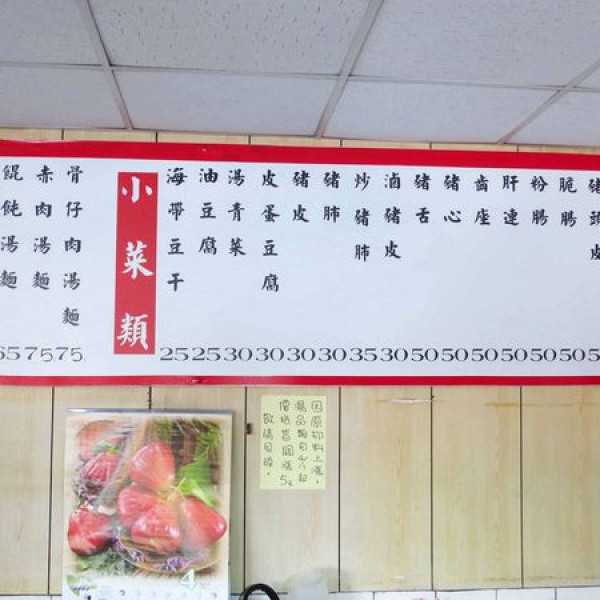 餛飩湯麵 65
赤肉湯麵 75
骨仔肉湯麵 75
小菜類
海帶豆干 25
油豆腐 25
湯青菜 30
皮蛋豆腐 30
豬皮 30
豬肺 30
炒豬肺 35
滷豬皮 30
豬舌 50
豬心 50
齒座 50
肝連 50
粉腸 50
脆腸 50
豬頭皮 5
因原物料上漲，
商品將自4/1起
價格皆調漲5元
敬請見諒。
4